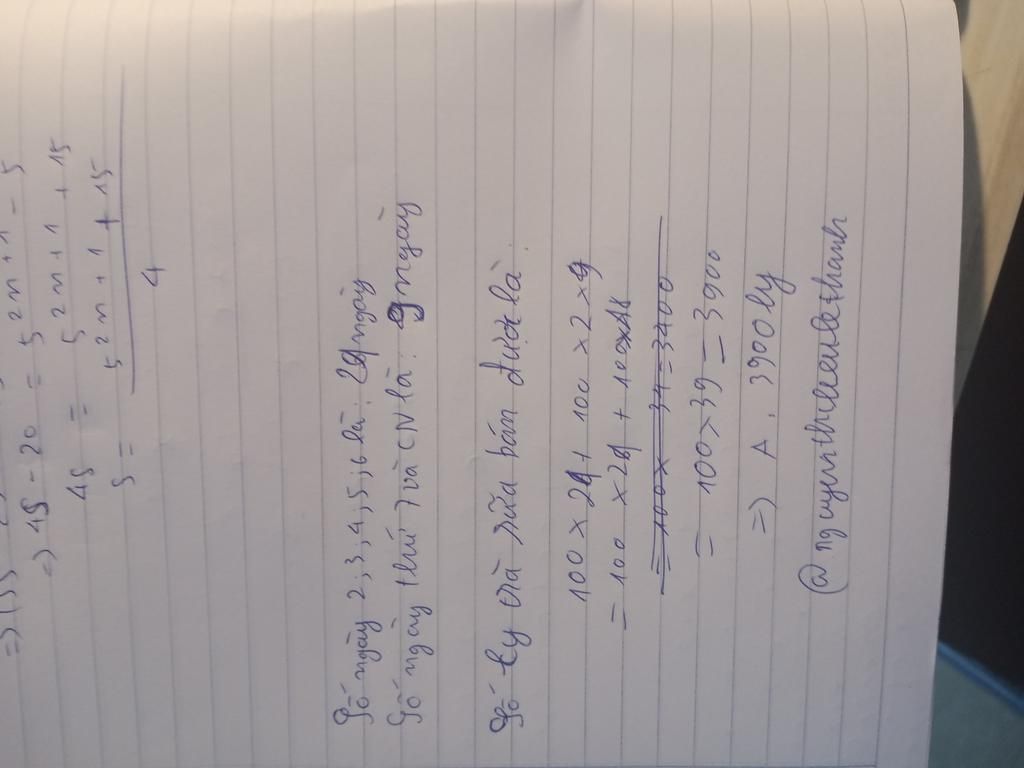 => 4S - 20 = 5²ⁿ⁺¹ - 5
4S = 5²ⁿ⁺¹ + 15
S = 5²ⁿ⁺¹ + 15
4
Số ngày 2,3,4,5,6 là: 21 ngày
Số ngày thứ 7 và CN là: 9 ngày
Số ly trà sữa bán được là:
100 × 21 + 100 × 2 × 9
= 100 × 21 + 100 × 18
= 100 × 34 = 3400
= 100 × 39 = 3900
=> A. 3900 ly